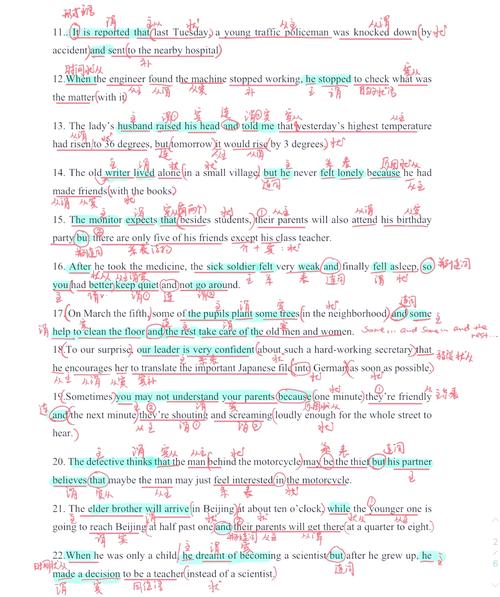 形式主语 谓 主从 状 从主 从谓
11.. It is reported that (last Tuesday,) a young traffic policeman was knocked down (by 状
accident) and sent (to the nearby hospital)
时间状从 补 宾从
12.When the engineer found the machine stopped working, he stopped to check what was
从主 从谓 从宾 主 谓
the matter (with it)
谓① 宾 连 谓② 宾 宾从 从主
13. The lady's husband raised his head and told me that yesterday's highest temperature
从谓 状
had risen to 36 degrees, but (tomorrow) it would rise (by 3 degrees.) 状
连 从主 从谓
主 谓 状 主 系 表
14. The old writer lived alone (in a small village,) but he never felt lonely because he had
连词 从主
made friends (with the books.)
从谓 从宾 状
主 谓 状 ① 从主 从谓 从宾
15. The monitor expects that (besides students,) their parents will also attend his birthday
②
party but there are only five of his friends except his class teacher.
介 + 宾:状
16. After he took the medicine, the sick soldier felt very weak and finally fell asleep, so
主 系 表 连词 谓 状
you had better keep quiet and not go around.
主 谓 谓① 连 谓②
状 主 谓 宾 状 连词
17. (On March the fifth,) some of the pupils plant some trees (in the neighborhood) and some
谓 宾 Some... and some... and the
help to clean the floor and the rest take care of the old men and women. rest...
状 主 系 表 状
18.(To our surprise,) our leader is very confident (about such a hard-working secretary) that
he encourages her to translate the important Japanese file (into German) (as soon as possible.)
从主 从谓 从宾 宾补
主 谓 宾 ①
19.(Sometimes) you may not understand your parents because (one minute) they're friendly
连 ②
and (the next minute) they're shouting and screaming (loudly enough for the whole street to
从主 谓① 谓②
hear.)
主 谓 宾从 从主 系 表 连词
20. The defective thinks that the man (behind the motorcycle) may be the thief but his partner
主
believes that maybe the man may just feel interested (in the motorcycle.
谓 宾从 从主 系 表 状
主 谓 状 状 ①
21. The elder brother will arrive (in Beijing) (at about ten o'clock), while the younger one is
②
going to reach Beijing (at half past one) and their parents will get there (at a quarter to eight.)
从主 从谓
主 谓 宾
22.When he was only a child, he dreamt of becoming a scientist but after he grew up, he 主
时间状从 连词
made a decision to be a teacher (instead of a scientist.)
谓 宾 同位语 状
2
/
6